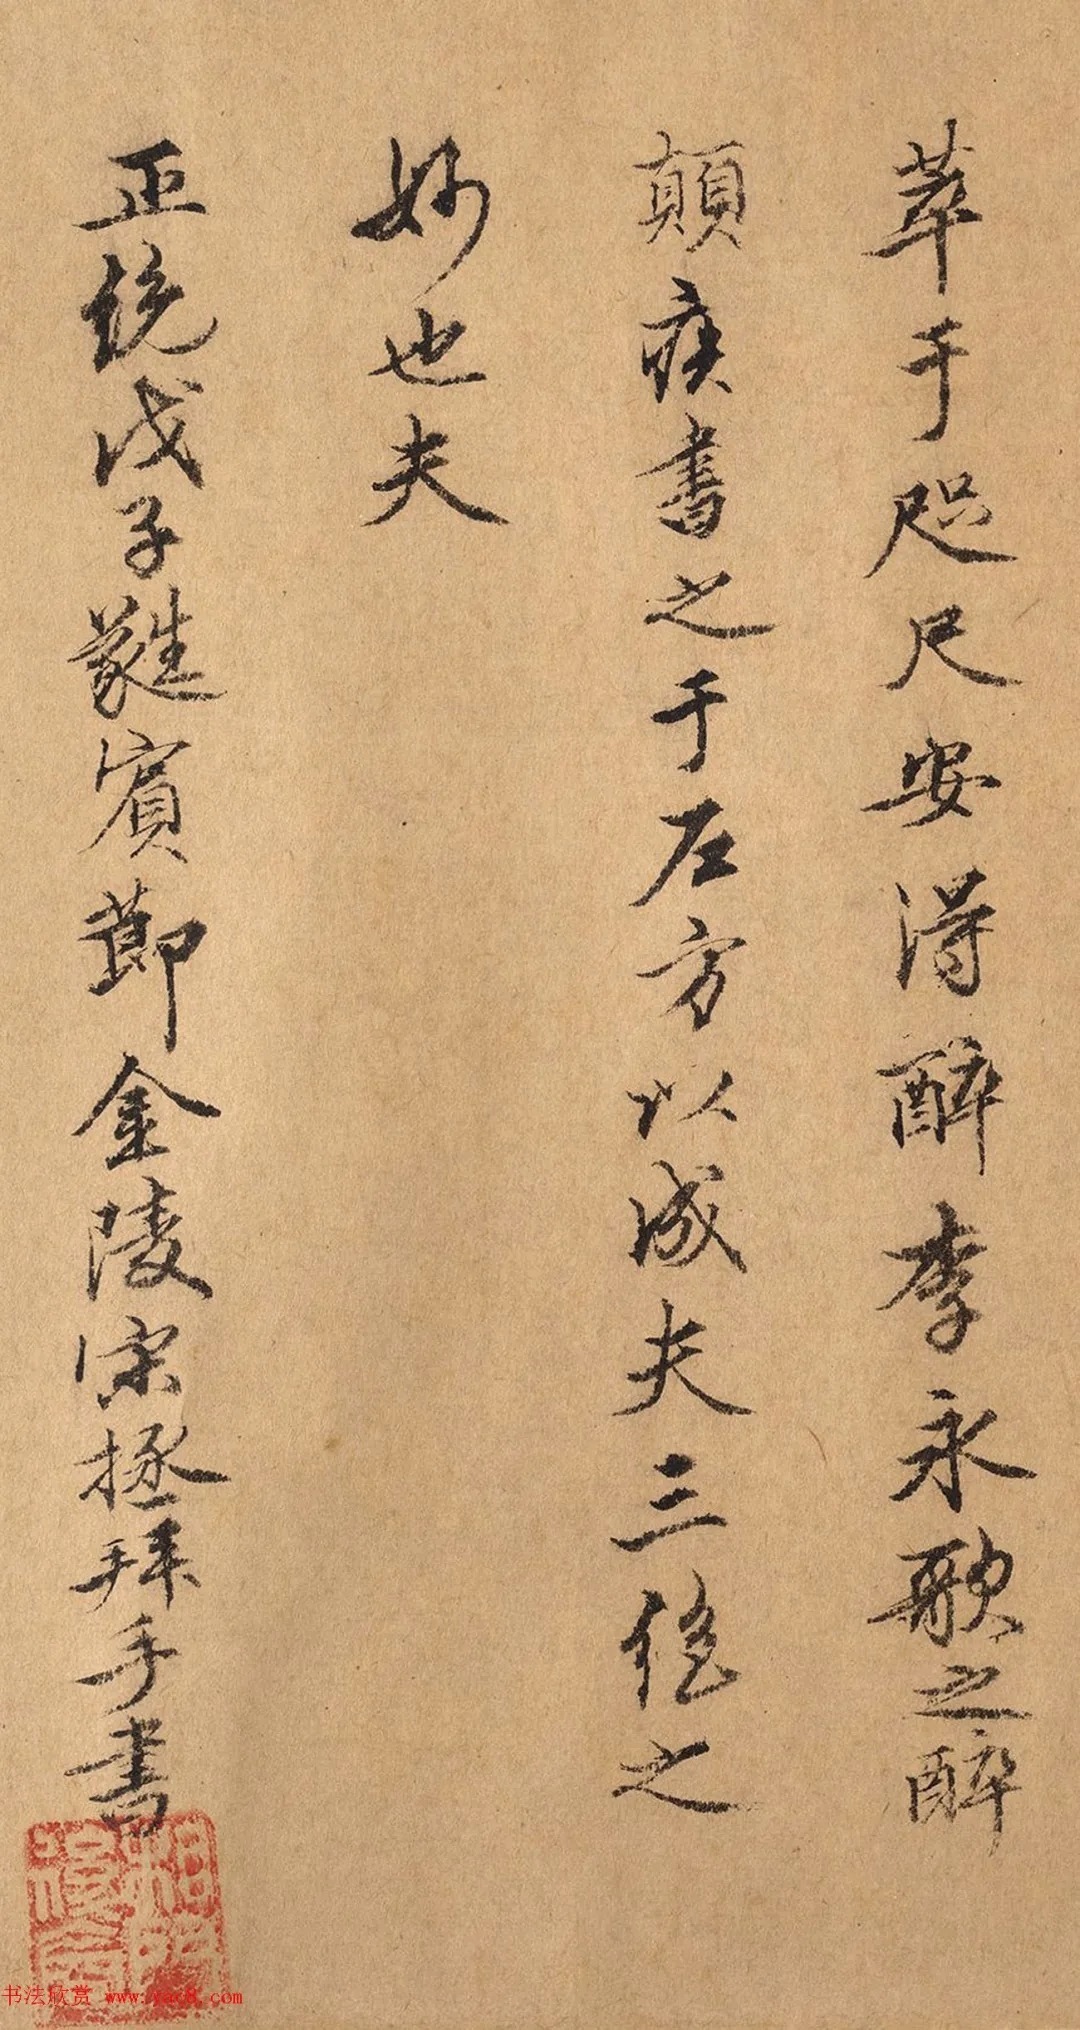 萃于咫尺安得醉李永歌之醉
顛疾書之于左方以成夫三絕之
妙也夫
正統戊子蕤賓節金陵宋拯拜手書
书法欣赏 www.yac8.com